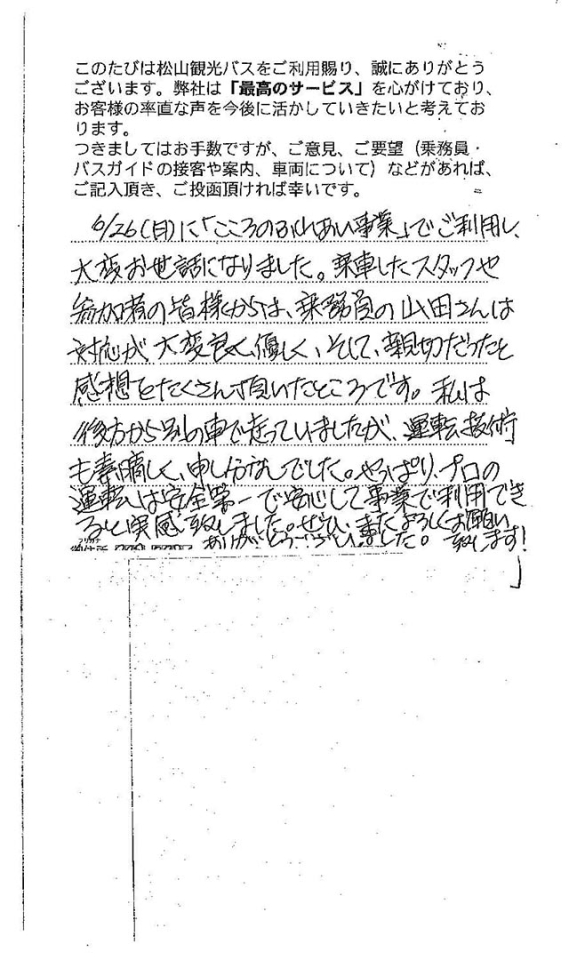 このたびは松山観光バスをご利用賜り、誠にありがとう
ございます。弊社は「最高のサービス」を心がけており、
お客様の率直な声を今後に活かしていきたいと考えてお
ります。
つきましてはお手数ですが、ご意見、ご要望（乗務員・
バスガイドの接客や案内、車両について）などがあれば、
ご記入頂き、ご投函頂ければ幸いです。
6/26(月)に「こころのふれあい事業」でご利用し、
大変お世話になりました。乗車したスタッフや
参加者の皆様からは、乗務員の山田さんは
対応が大変良く、優しく、そして、親切だったと
感想をたくさん頂いたところです。私は
後方から別の車で走っていましたが、運転技術
も素晴しく、申し分なしでした。やっぱり、プロの
運転は安全第一で安心して事業で利用でき
ると実感致しました。ぜひ、またよろしくお願い
致します!
ありがとうございました。
フリガナ